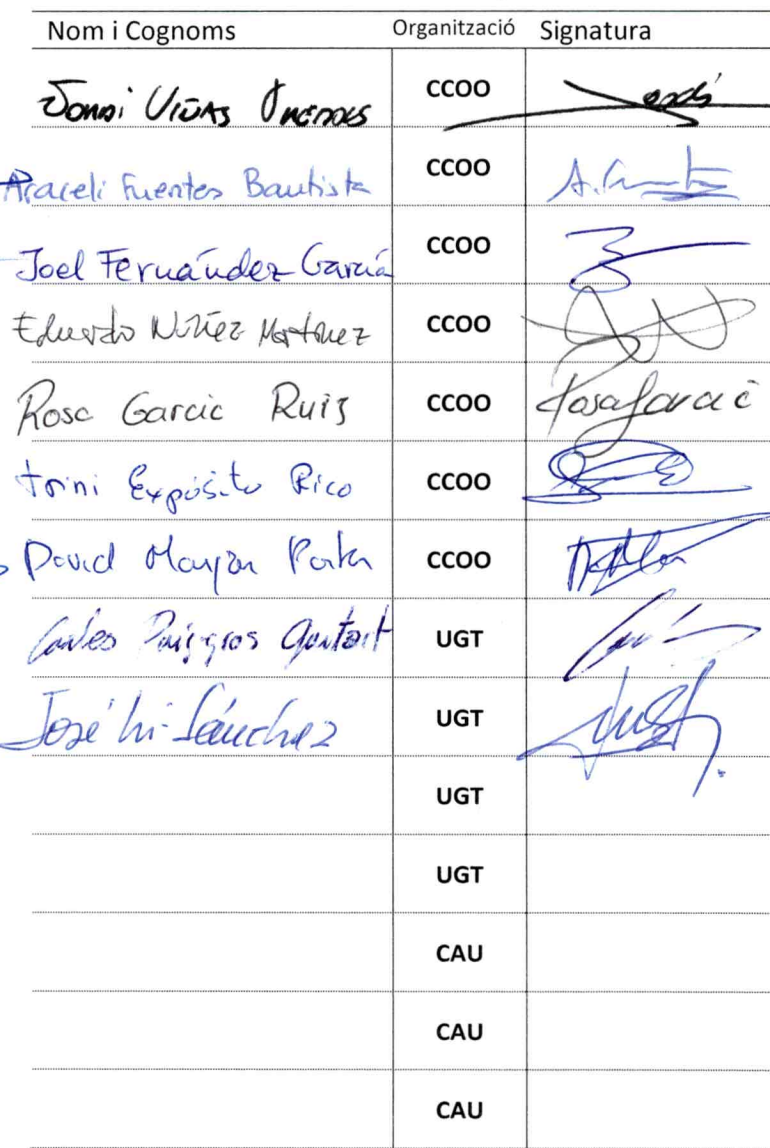 Nom i Cognoms Organització Signatura
Jordi Viñas CCOO Jordi
Araceli Fuentes Bautista CCOO
Joel Fernández García CCOO
Eduardo Núñez Martínez CCOO
Rosa Garcia Ruiz CCOO Rosa Garcia
Trini Expósito Rico CCOO
David CCOO
Carles Puiggros UGT
José Sánchez UGT
UGT
UGT
CAU
CAU
CAU